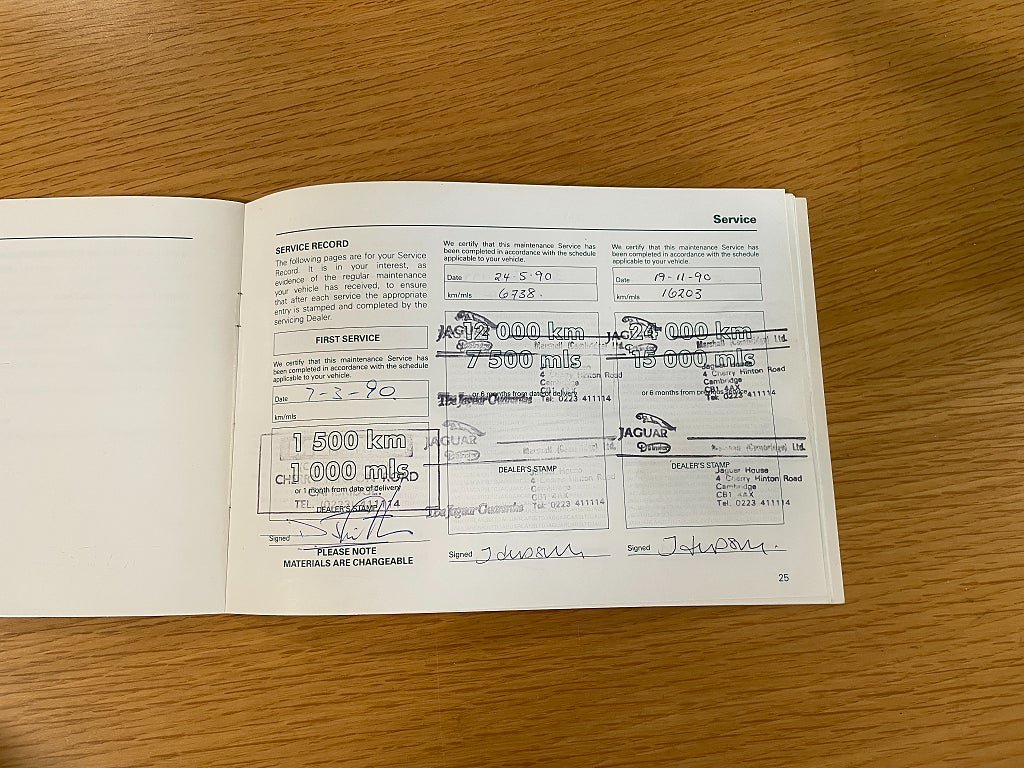 Service
SERVICE RECORD
The following pages are for your Service
Record. It is in your interest, as
evidence of the regular maintenance
your vehicle has received, to ensure
that after each service the appropriate
entry is stamped and completed by the
servicing Dealer.
FIRST SERVICE
We certify that this maintenance Service has
been completed in accordance with the schedule
applicable to your vehicle.
Date 7-3-90
km/mls
1 500 km
1 000 mls
or 1 month from date of delivery
DEALER'S STAMP
Signed
PLEASE NOTE
MATERIALS ARE CHARGEABLE
We certify that this maintenance Service has
been completed in accordance with the schedule
applicable to your vehicle.
Date 24·5·90
km/mls 6738.
12 000 km
7 500 mls
or 6 months from date of delivery
JAGUAR
Daimler
Marshall (Cambridge) Ltd.
4 Cherry Hinton Road
Cambridge
CB1 4AX
Tel: 0223 411114
JAGUAR
Daimler
DEALER'S STAMP
Jaguar House
4 Cherry Hinton Road
Cambridge
CB1 4AX
Tel: 0223 411114
Signed
We certify that this maintenance Service has
been completed in accordance with the schedule
applicable to your vehicle.
Date 19-11-90
km/mls 16203
24 000 km
15 000 mls
JAGUAR
Daimler
Marshall (Cambridge) Ltd.
Jaguar House
4 Cherry Hinton Road
Cambridge
CB1 4AX
Tel: 0223 411114
or 6 months from
JAGUAR
Daimler
(Cambridge) Ltd.
DEALER'S STAMP
Jaguar House
4 Cherry Hinton Road
Cambridge
CB1 4AX
Tel. 0223 411114
Signed
25